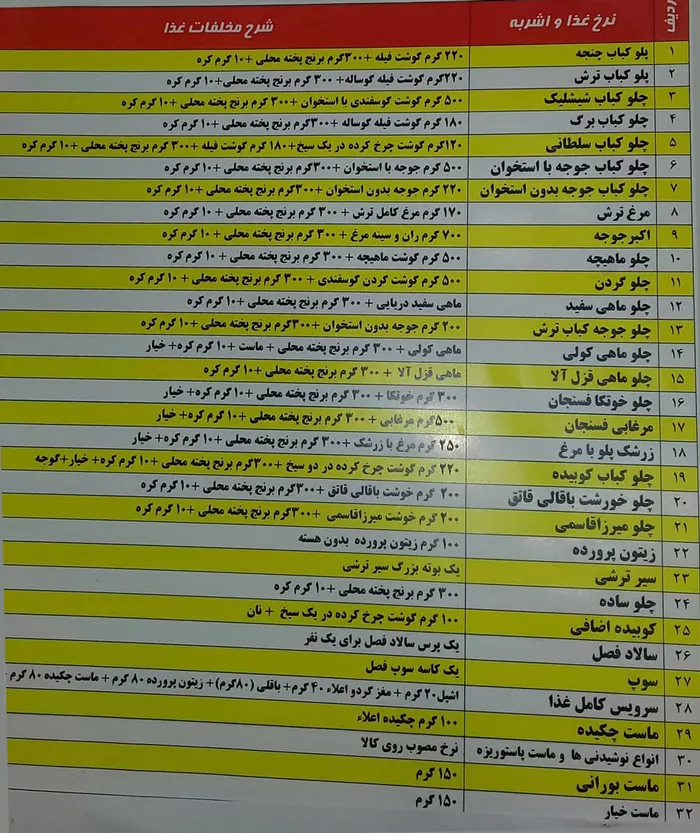 ردیف نرخ غذا و اشربه شرح مخلفات غذا
۱ پلو کباب چنجه ۲۲۰ گرم گوشت فیله +۳۰۰گرم برنج پخته محلی +۱۰ گرم کره
۲ پلو کباب ترش ۲۲۰گرم گوشت فیله گوساله+ ۳۰۰ گرم برنج پخته محلی+۱۰ گرم کره
۳ چلو کباب شیشلیک ۵۰۰ گرم گوشت گوسفندی با استخوان +۳۰۰ گرم برنج پخته محلی +۱۰ گرم کره
۴ چلو کباب برگ ۱۸۰ گرم گوشت فیله گوساله +۳۰۰گرم برنج پخته محلی +۱۰ گرم کره
۵ چلو کباب سلطانی ۱۲۰گرم گوشت چرخ کرده در یک سیخ+۱۸۰ گرم گوشت فیله +۳۰۰ گرم برنج پخته محلی +۱۰ گرم کره
۶ چلو کباب جوجه با استخوان ۵۰۰ گرم جوجه با استخوان +۳۰۰گرم برنج پخته محلی +۱۰ گرم کره
۷ چلو کباب جوجه بدون استخوان ۲۲۰ گرم جوجه بدون استخوان +۳۰۰گرم برنج پخته محلی +۱۰ گرم کره
۸ مرغ ترش ۱۷۰ گرم مرغ کامل ترش + ۳۰۰ گرم برنج پخته محلی + ۱۰ گرم کره
۹ اکبرجوجه ۷۰۰ گرم ران و سینه مرغ + ۳۰۰ گرم برنج پخته محلی + ۱۰ گرم کره
۱۰ چلو ماهیچه ۵۰۰ گرم گوشت ماهیچه + ۳۰۰ گرم برنج پخته محلی + ۱۰ گرم کره
۱۱ چلو گردن ۵۰۰ گرم گوشت گردن گوسفندی + ۳۰۰ گرم برنج پخته محلی + ۱۰ گرم کره
۱۲ چلو ماهی سفید ماهی سفید دریایی + ۳۰۰ گرم برنج پخته محلی +۱۰ گرم کره
۱۳ چلو جوجه کباب ترش ۲۰۰ گرم جوجه بدون استخوان +۳۰۰گرم برنج پخته محلی +۱۰ گرم کره
۱۴ چلو ماهی کولی ماهی کولی + ۳۰۰ گرم برنج پخته محلی + ماست +۱۰ گرم کره+ خیار
۱۵ چلو ماهی قزل آلا ماهی قزل آلا + ۳۰۰ گرم برنج پخته محلی +۱۰ گرم کره
۱۶ چلو خوتکا فسنجان ۳۰۰ گرم خوتکا + ۳۰۰ گرم برنج پخته محلی +۱۰ گرم کره+ خیار
۱۷ مرغابی فسنجان ۵۰۰گرم مرغابی + ۳۰۰ گرم برنج پخته محلی +۱۰ گرم کره+ خیار
۱۸ زرشک پلو با مرغ ۲۵۰ گرم مرغ با زرشک +۳۰۰ گرم برنج پخته محلی +۱۰ گرم کره+ خیار
۱۹ چلو کباب کوبیده ۲۲۰ گرم گوشت چرخ کرده در دو سیخ +۳۰۰گرم برنج پخته محلی +۱۰ گرم کره+ خیار+گوجه
۲۰ چلو خورشت باقالی قاتق ۲۰۰ گرم خوشت باقالی قاتق +۳۰۰گرم برنج پخته محلی +۱۰ گرم کره
۲۱ چلو میرزاقاسمی ۲۰۰ گرم خوشت میرزاقاسمی +۳۰۰گرم برنج پخته محلی +۱۰ گرم کره
۲۲ زیتون پرورده ۱۰۰ گرم زیتون پرورده بدون هسته
۲۳ سیر ترشی یک بوته بزرگ سیر ترشی
۲۴ چلو ساده ۳۰۰ گرم برنج پخته محلی +۱۰ گرم کره
۲۵ کوبیده اضافی ۱۰۰ گرم گوشت چرخ کرده در یک سیخ + نان
۲۶ سالاد فصل یک پرس سالاد فصل برای یک نفر
۲۷ سوپ یک کاسه سوپ فصل
۲۸ سرویس کامل غذا اشپل۲۰ گرم + مغز گردو اعلاء ۴۰ گرم+ باقلی (۸۰گرم)+ زیتون پرورده ۸۰ گرم + ماست چکیده ۸۰ گرم +
۲۹ ماست چکیده ۱۰۰ گرم چکیده اعلاء
۳۰ انواع نوشیدنی ها و ماست پاستوریزه نرخ مصوب روی کالا
۳۱ ماست بورانی ۱۵۰ گرم
۳۲ ماست خیار ۱۵۰ گرم